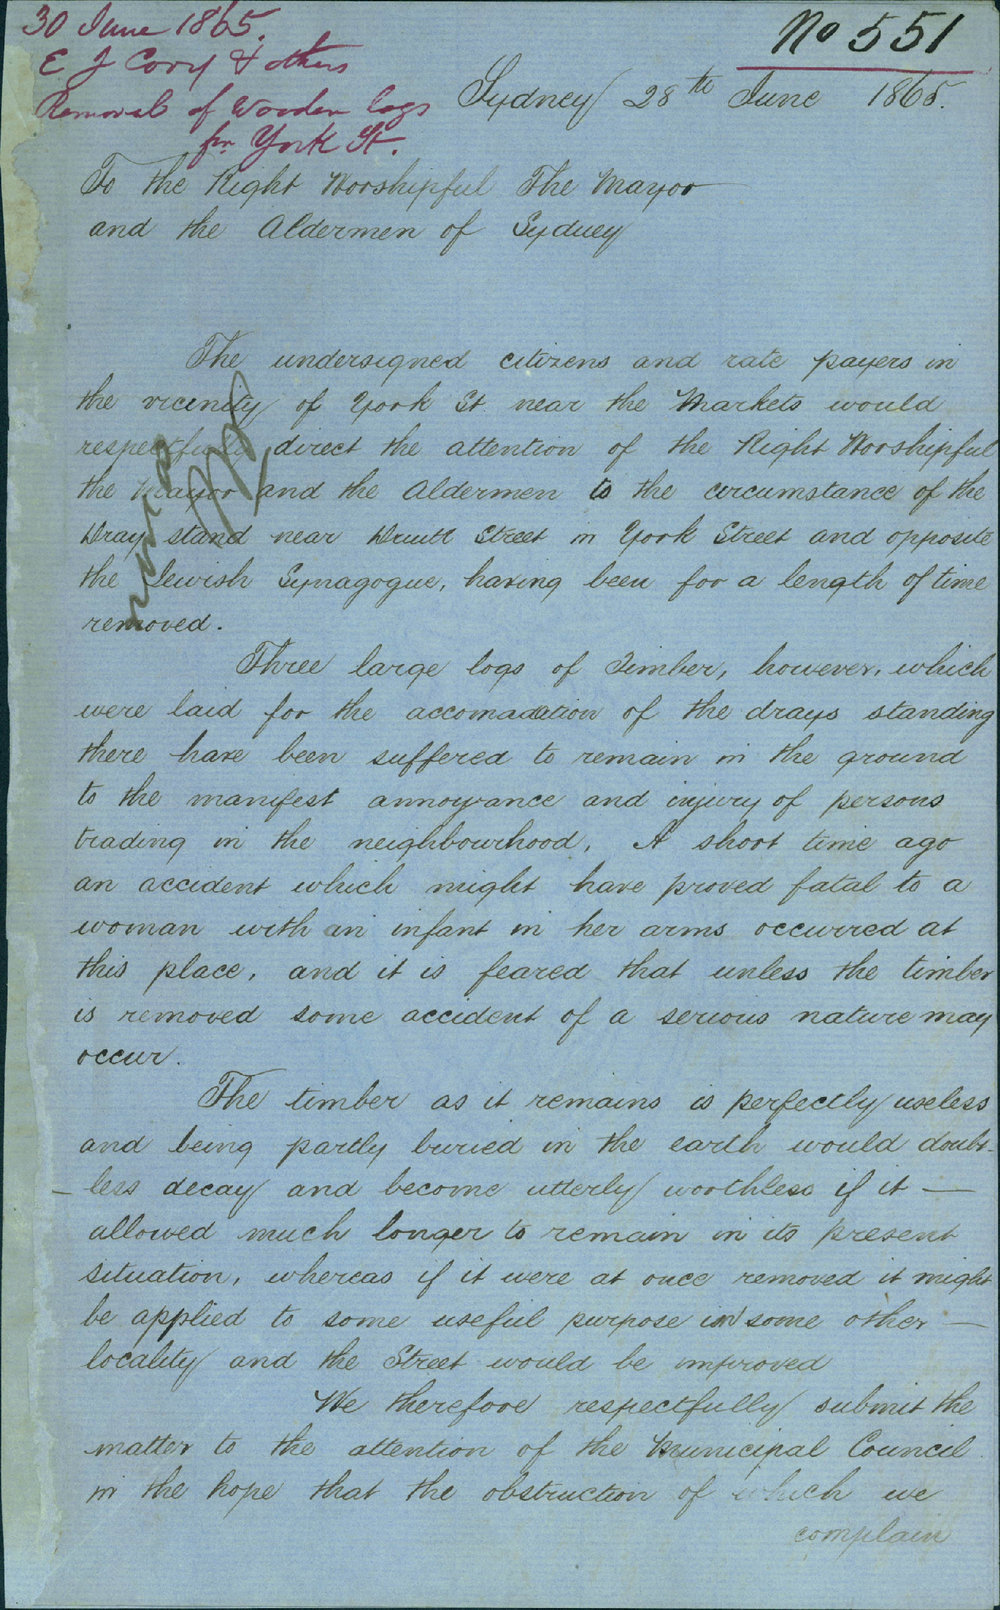 30 June 1865.
E J Cory & others
Removal of Wooden logs
fm York St.
No 551
Sydney 28th June 1865.
To the Right Worshipful The Mayor
and the Aldermen of Sydney
The undersigned citizens and rate payers in
the vicinity of York St. near the Markets would
respectfully direct the attention of the Right Worshipful
the Mayor and the Aldermen to the circumstance of the
Dray stand near Druitt Street in York Street and opposite
the Jewish Synagogue, having been for a length of time
removed.
Three large logs of Timber, however, which
were laid for the accomadation of the drays standing
there have been suffered to remain in the ground
to the manifest annoyance and injury of persons
trading in the neighbourhood. A short time ago
an accident which might have proved fatal to a
woman with an infant in her arms occurred at
this place, and it is feared that unless the timber
is removed some accident of a serious nature may
occur.
The timber as it remains is perfectly useless
and being partly buried in the earth would doubt-
less decay and become utterly worthless if it —
allowed much longer to remain in its present
situation, whereas if it were at once removed it might
be applied to some useful purpose in some other —
locality and the Street would be improved
We therefore respectfully submit the
matter to the attention of the Municipal Council
in the hope that the obstruction of which we
complain